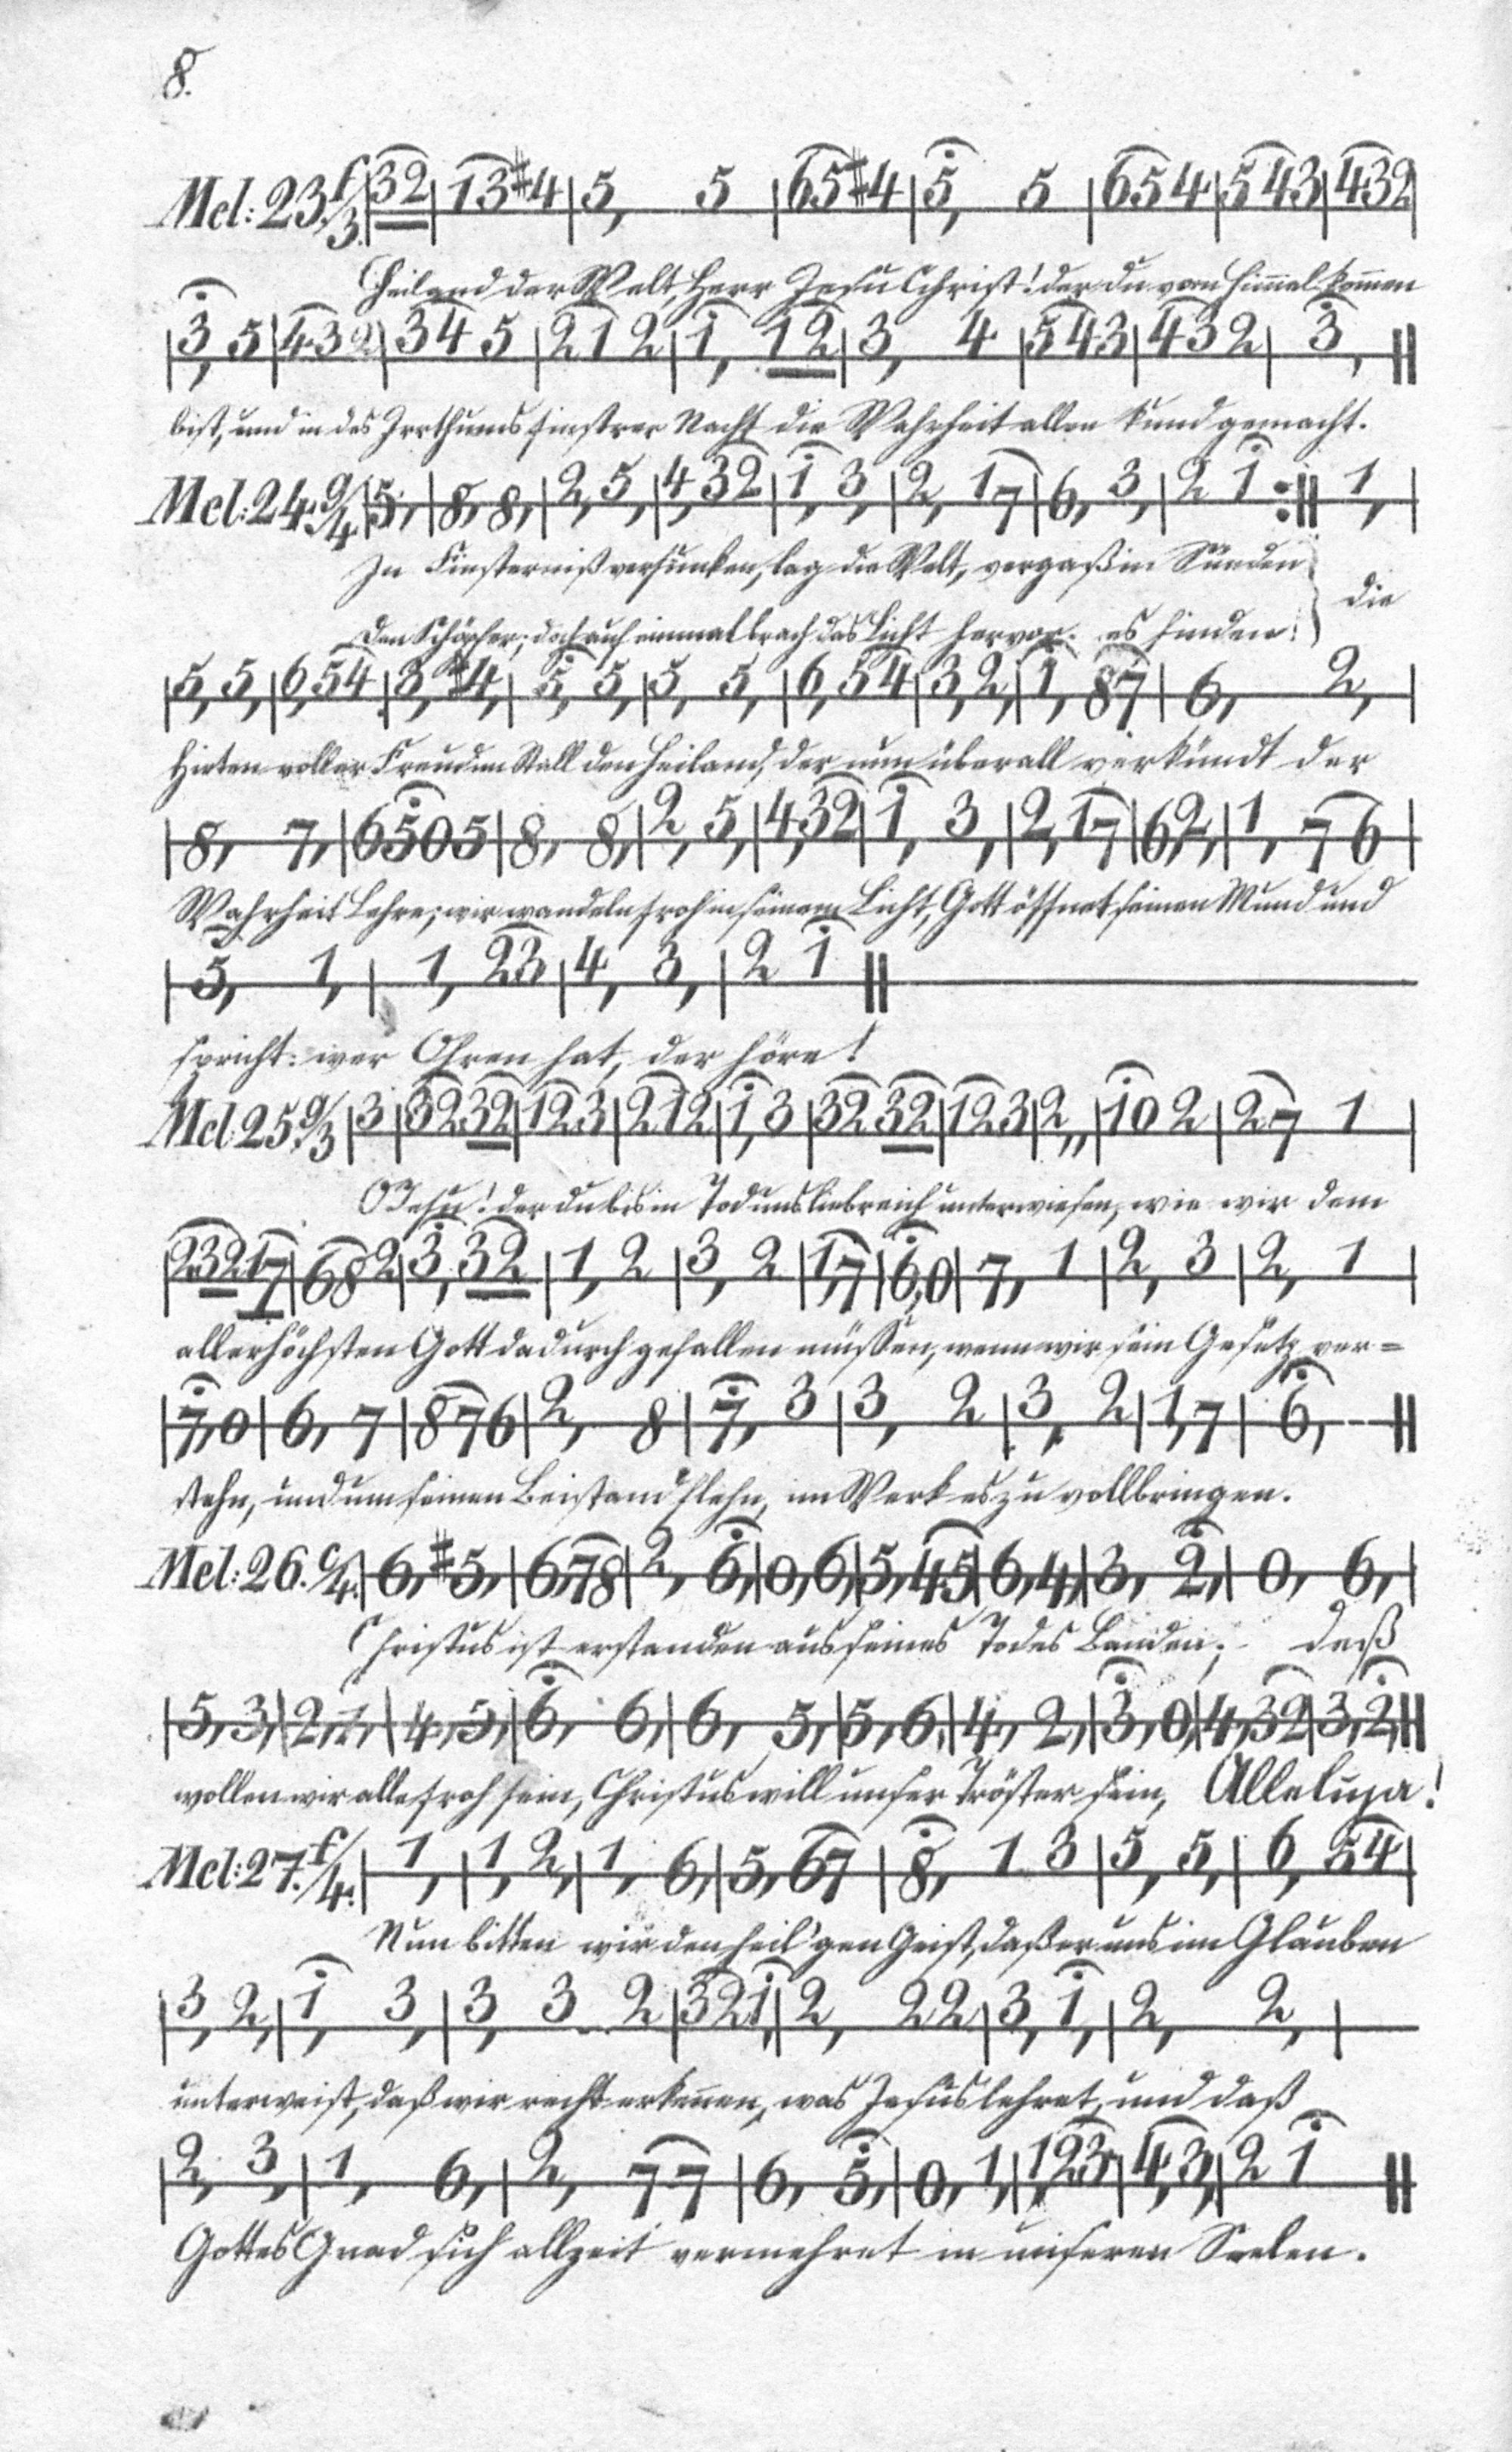 8.
Mel: 23. f/3. |32|13#4|5, 5|65#4|5, 5|654|543|432|
Heiland der Welt, Herr Jesu Christ! der du vom Himmel kommen
|3, 5|432|345|212|1, 12|3, 4|543|432|3,||
bist, und in des Irrthums finstrer Nacht die Wahrheit allen kund gemacht.
Mel: 24. g/4. |5,|8, 8,|2, 5,|4, 32|1, 3,|2, 17|6, 3,|2 1:|| 1,|
In Finsterniß versunken, lag die Welt, vergaß in Sünden
den Schöpfer; doch auf einmal brach das Licht hervor. es finden: } die
|5, 5,|6, 54|3, #4,|5, 5,|5, 5,|6, 54|3, 2,|1, 87|6, 2,|
Hirten voller Freud im Stall den Heiland, der nun überall verkündt der
|8, 7,|6505|8, 8,|2, 5,|4, 32|1, 3,|2, 17|6, 2,|1, 76|
Wahrheit Lehre; wir wandeln froh in seinem Licht, Gott öffnet seinen Mund und
|5, 1,|1, 23|4, 3,|2 1||
spricht: wer Ohren hat, der höre!
Mel 25. g/3 |3|3232|123|212|1, 3|3232|123|2,,|102|27 1|
O Jesu! der du bis in Tod uns liebreich unterwiesen, wie wir dem
|23217|682|3, 32|1, 2|3, 2|1, 7|6, 0|7, 1|2, 3|2, 1|
allerhöchsten Gott dadurch gefallen müssen, wenn wir sein Gesetz ver=
|7, 0|6, 7|876|2, 8|7, 3|3, 2|3, 2|1, 7|6,--||
stehn, und um seinen Beistand flehn, im Werk es zu vollbringen.
Mel: 26. c/4. |6, #5,|6, 78|2, 6,|0, 6,|5, 45|6, 4,|3, 2,|0, 6,|
Christus ist erstanden aus seines Todes Banden; daß
|5, 3,|2, 1,|4, 5,|6, 6,|6, 5,|5, 6,|4, 2,|3, 0,|4, 32|3, 2,||
wollen wir alle froh sein, Christus will unser Tröster sein, Alleluja!
Mel: 27. f/4. |1,|1, 2,|1, 6,|5, 67|8, 1 3|5, 5,|6, 54|
Nun bitten wir den heil'gen Geist, daß er uns im Glauben
|3, 2,|1, 3,|3, 3 2|321,|2, 22|3, 1,|2, 2,|
unterweist, daß wir recht erkennen, was Jesus lehret, und daß
|2, 3,|1, 6,|2, 77|6, 5,|0, 1,|1, 23|4, 3,|2 1||
Gottes Gnad sich allzeit vermehret in unseren Seelen.